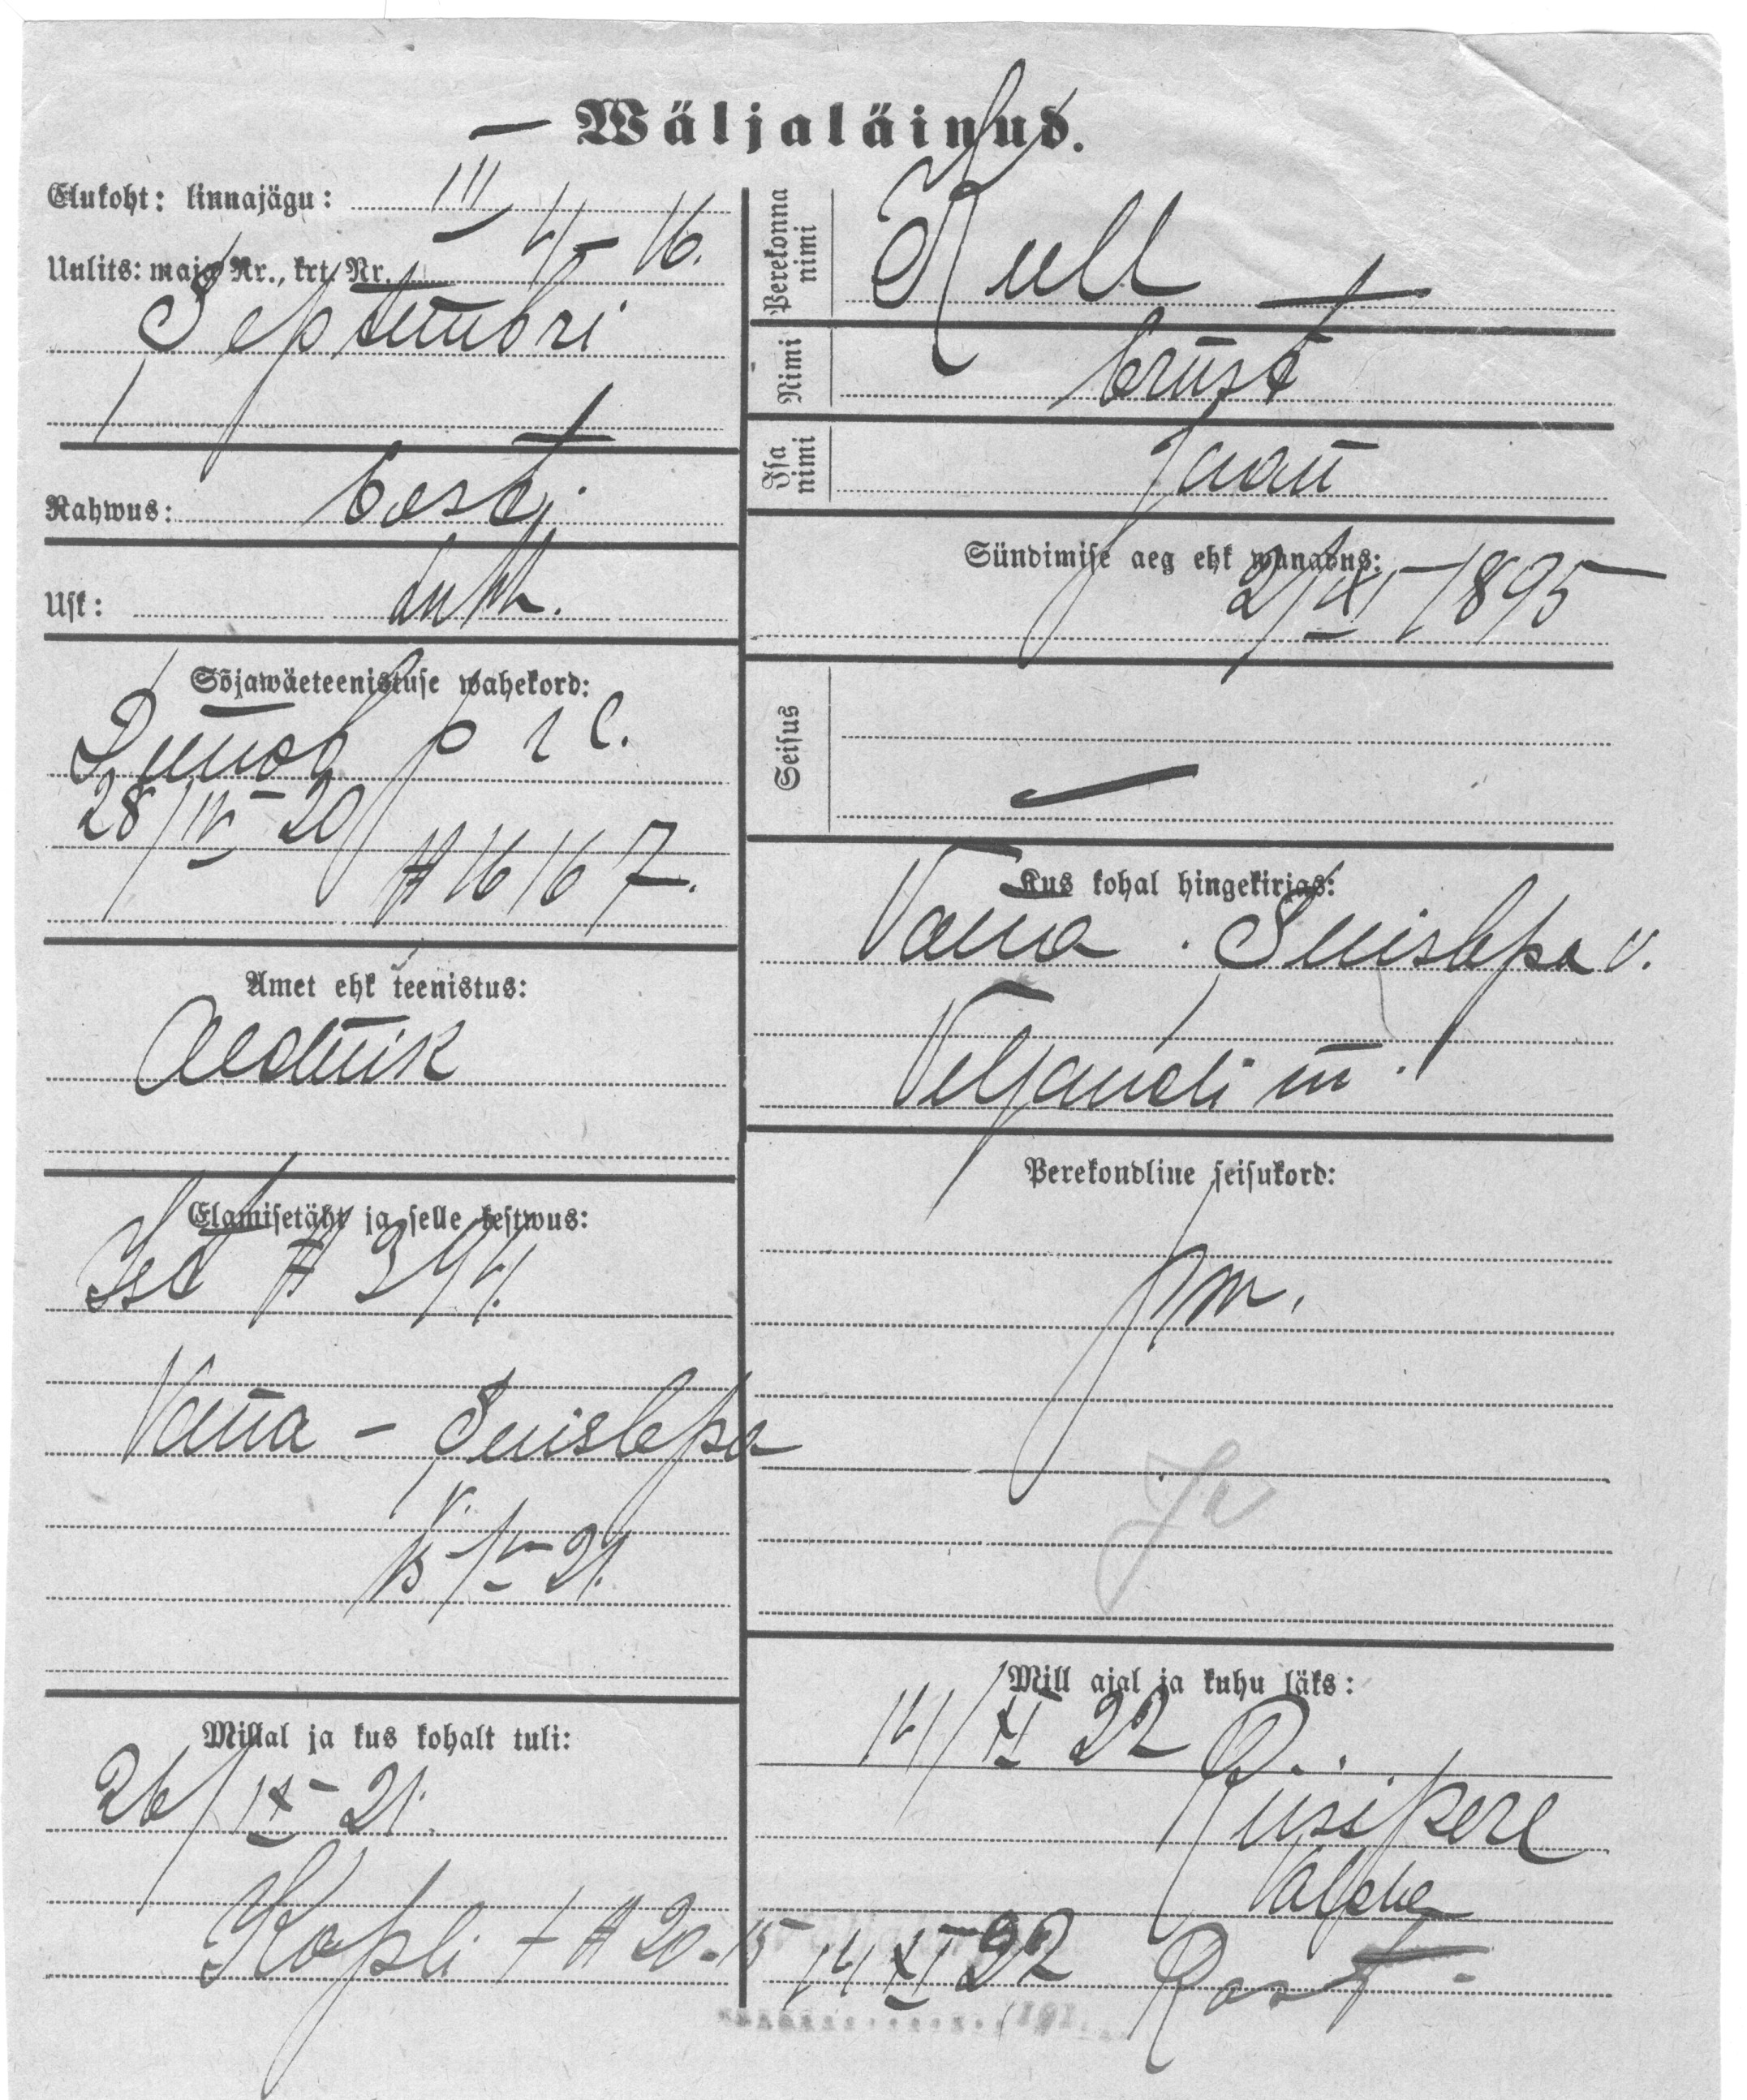 Wäljaläinud.
Elukoht: linnajägu: III
Uulits: maja Nr., krt. Nr. 4 - 16.
Septembri
Rahwus: Eesti
Usk: luth.
Sõjawäeteenistuse wahekord:
28/IV - 20
№ 16167.
Amet ehk teenistus:
Aednik
Elamisetäht ja selle kestwus:
Iset № 344.
Vana - Suislepa
v.
Millal ja kus kohalt tuli:
26/IX - 21.
Kopli t № 20-15
Perekonna nimi Kull
Nimi Ernst
Isa nimi Jaan
Sündimise aeg ehk wanadus:
2/XI - 1895
Seisus —
Kus kohal hingekirjas:
Vana. Suislepa v.
Veljandi m.
Perekondline seisukord:
Mill ajal ja kuhu läks:
14/XI 22
Riisipere
14 XI 22